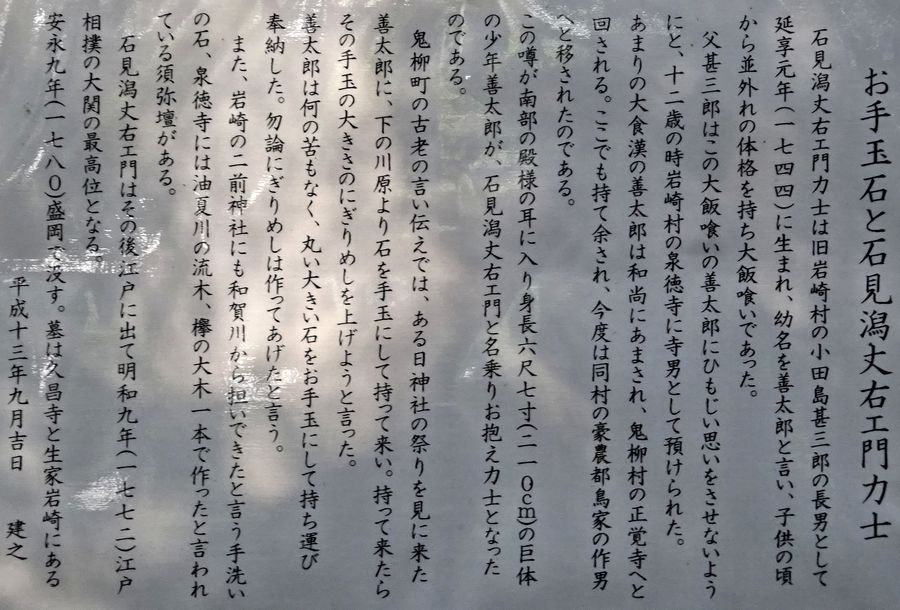 お手玉石と石見潟丈右エ門力士
石見潟丈右エ門力士は旧岩崎村の小田島甚三郎の長男として
延享元年(一七四四)に生まれ、幼名を善太郎と言い、子供の頃
から並外れの体格を持ち大飯喰いであった。
父甚三郎はこの大飯喰いの善太郎にひもじい思いをさせないよう
にと、十二歳の時岩崎村の泉徳寺に寺男として預けられた。
あまりの大食漢の善太郎は和尚にあまされ、鬼柳村の正覚寺へと
回される。ここでも持て余され、今度は同村の豪農都鳥家の作男
へと移されたのである。
この噂が南部の殿様の耳に入り身長六尺七寸(二一〇cm)の巨体
の少年善太郎が、石見潟丈右エ門と名乗りお抱え力士となった
のである。
鬼柳町の古老の言い伝えでは、ある日神社の祭りを見に来た
善太郎に、下の川原より石を手玉にして持って来い。持って来たら
その手玉の大きさのにぎりめしを上げようと言った。
善太郎は何の苦もなく、丸い大きい石をお手玉にして持ち運び
奉納した。勿論にぎりめしは作ってあげたと言う。
また、岩崎の二前神社にも和賀川から担いできたと言う手洗い
の石、泉徳寺には油夏川の流木、欅の大木一本で作ったと言われ
ている須弥壇がある。
石見潟丈右エ門はその後江戸に出て明和九年(一七七二)江戸
相撲の大関の最高位となる。
安永九年(一七八〇)盛岡で没す。墓は久昌寺と生家岩崎にある
平成十三年九月吉日 建之